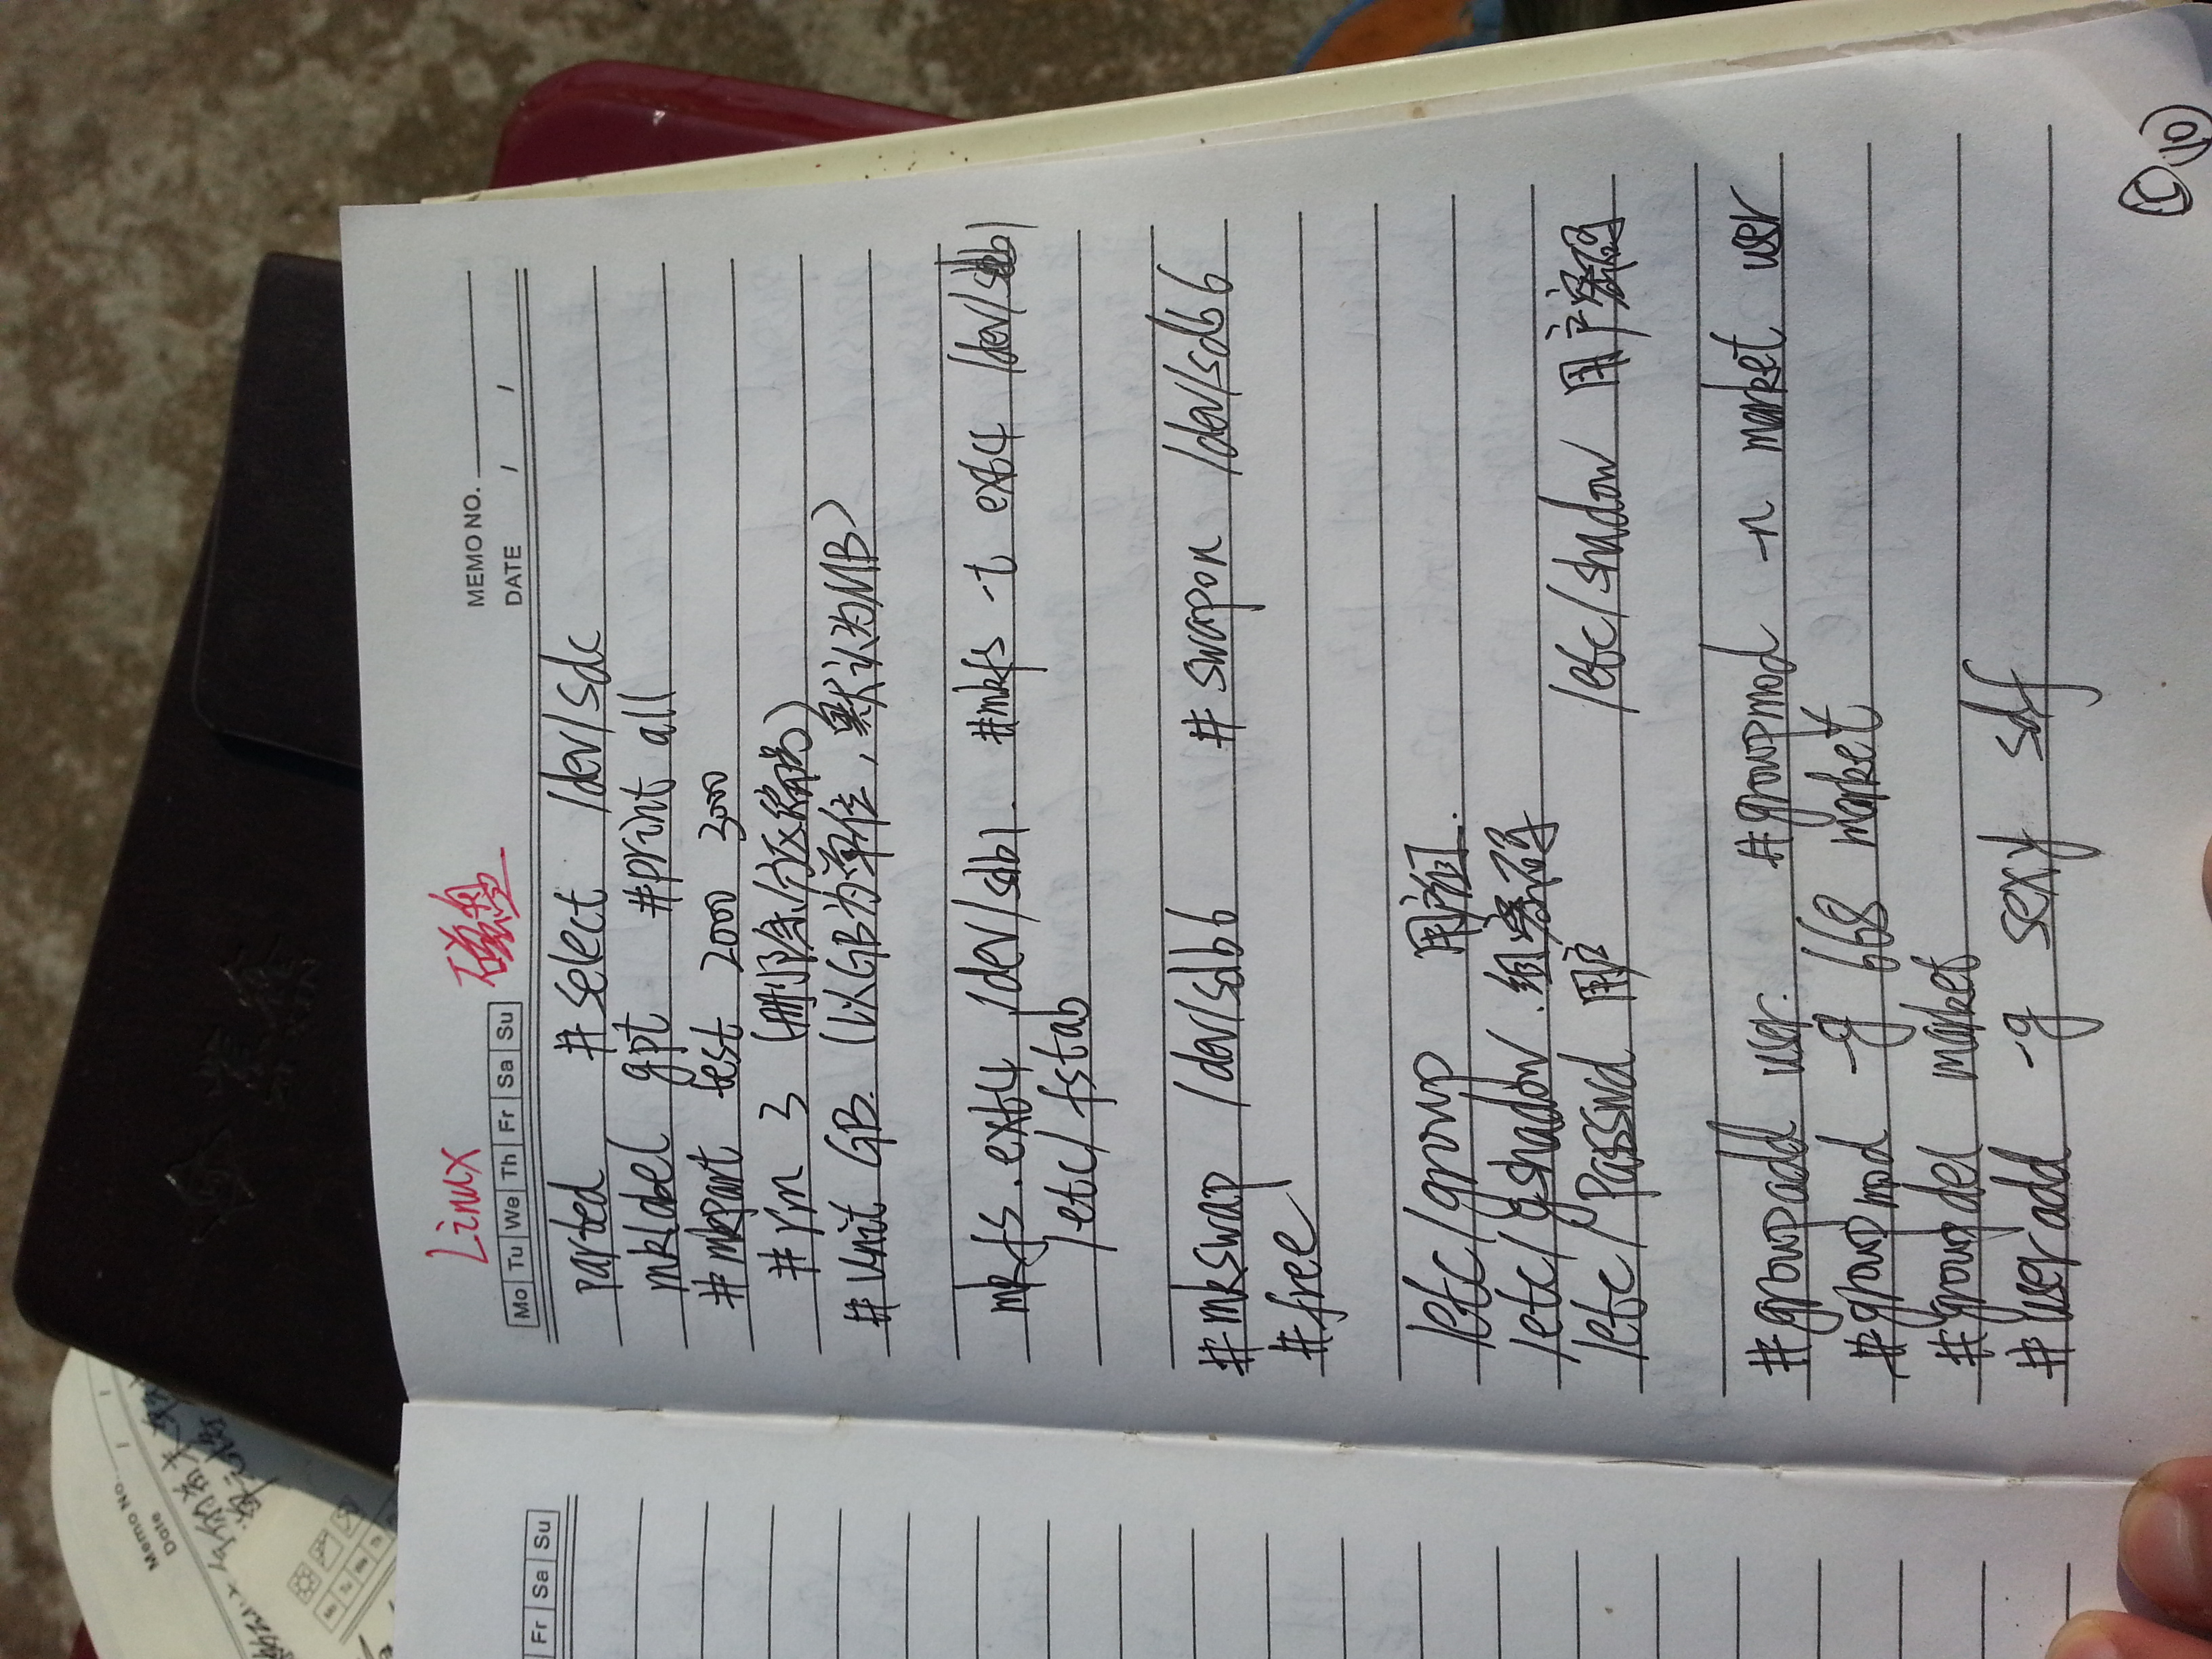 Fr Sa Su
Memo No.
Date
Linux 磁盘
MEMO NO.
Mo Tu We Th Fr Sa Su
DATE / /
parted #select /dev/sdc
mklabel gpt #print all
#mkpart test 2000 3000
#rm 3 (删除分区编号)
#unit GB. (以GB为单位,默认为MB)
mkfs.ext4 /dev/sdb1. #mkfs -t ext4 /dev/sdb1
/etc/fstab
#mkswap /dev/sdb6 #swapon /dev/sdb6
#free
/etc/group 用户组.
/etc/gshadow.组密码
/etc/Passwd 用户 /etc/shadow 用户密码
#groupadd user. #groupmod -n market user
#groupmod -g 668 market
#groupdel market
#useradd -g sexy sdf